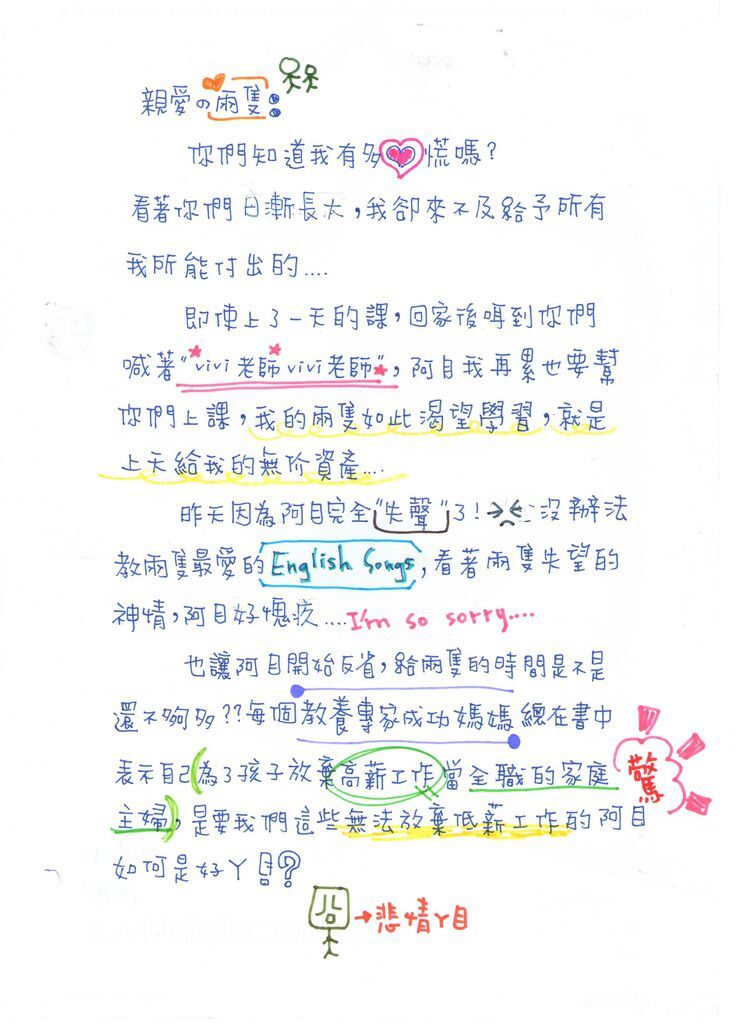 親愛の兩隻:
你們知道我有多慌嗎?
看著你們日漸長大,我卻來不及給予所有
我所能付出的....
即使上了一天的課,回家後唔到你們
喊著"vivi老師vivi老師",阿目我再累也要幫
你們上課,我的兩隻如此渴望學習,就是
上天給我的無价資產....
昨天因為阿目完全"失聲"了!沒辦法
教兩隻最愛的English Songs,看著兩隻失望的
神情,阿目好愧疚....I'm so sorry....
也讓阿目開始反省,給兩隻的時間是不是
還不夠多??每個教養專家成功媽媽總在書中
表示自己(為了孩子放棄高薪工作當全職的家庭
驚
主婦),是要我們這些無法放棄低薪工作的阿目
如何是好丫!?
→悲情丫目